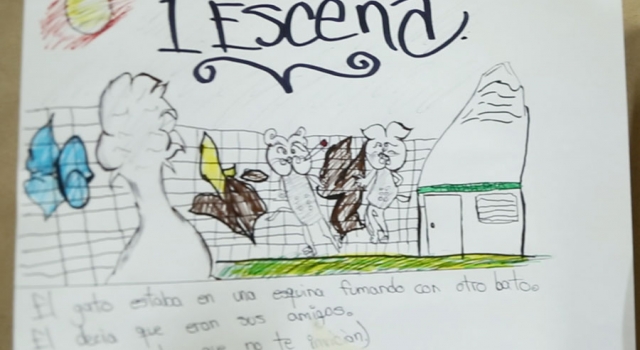 1 Escena.
El gato estaba en una esquina fumando con otro bato.
El decia que eran sus amigos.
que no te